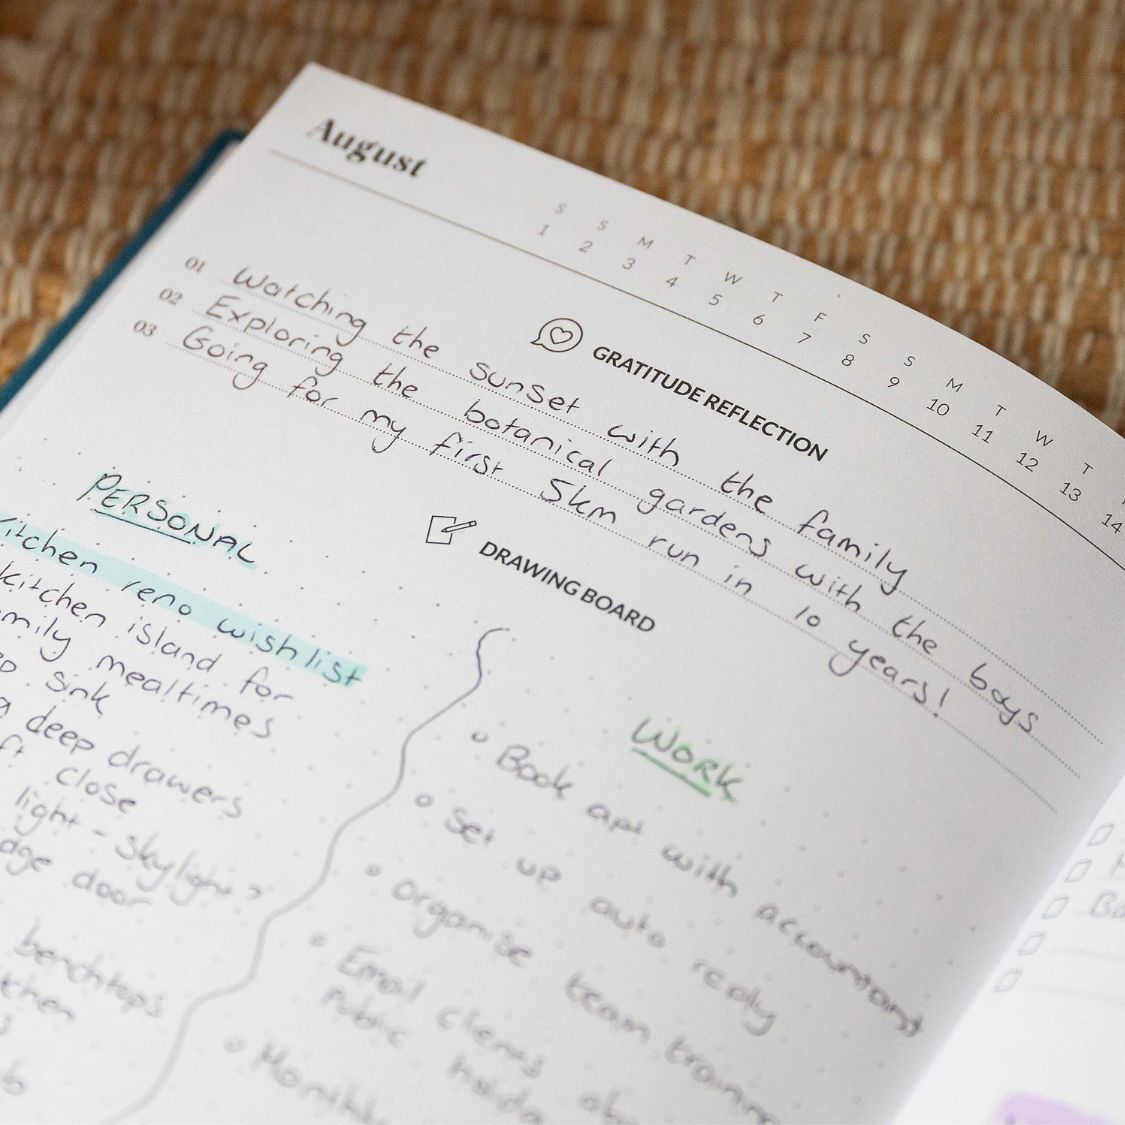 August
S S M T W T F S S M T W T
1 2 3 4 5 6 7 8 9 10 11 12 13 14
GRATITUDE REFLECTION
01 Watching the sunset with the family
02 Exploring the botanical gardens with the boys
03 Going for my first 5km run in 10 years!
DRAWING BOARD
PERSONAL
kitchen reno wishlist
kitchen island for
mealtimes
sink
deep drawers
close
light - skylight?
door
benchtops
WORK
Book apt with accountant
Set up auto reply
Organise team training
Email clients
Public
Monthly